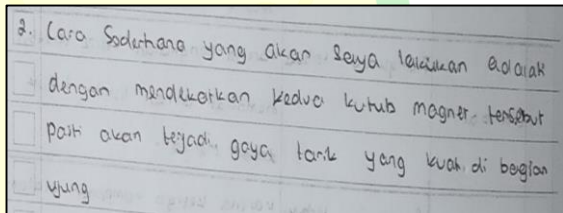 2. Cara Sederhana yang akan saya lakukan adalah
dengan mendekatkan kedua kutub magnet tersebut
pasti akan terjadi gaya tarik yang kuat di bagian
ujung